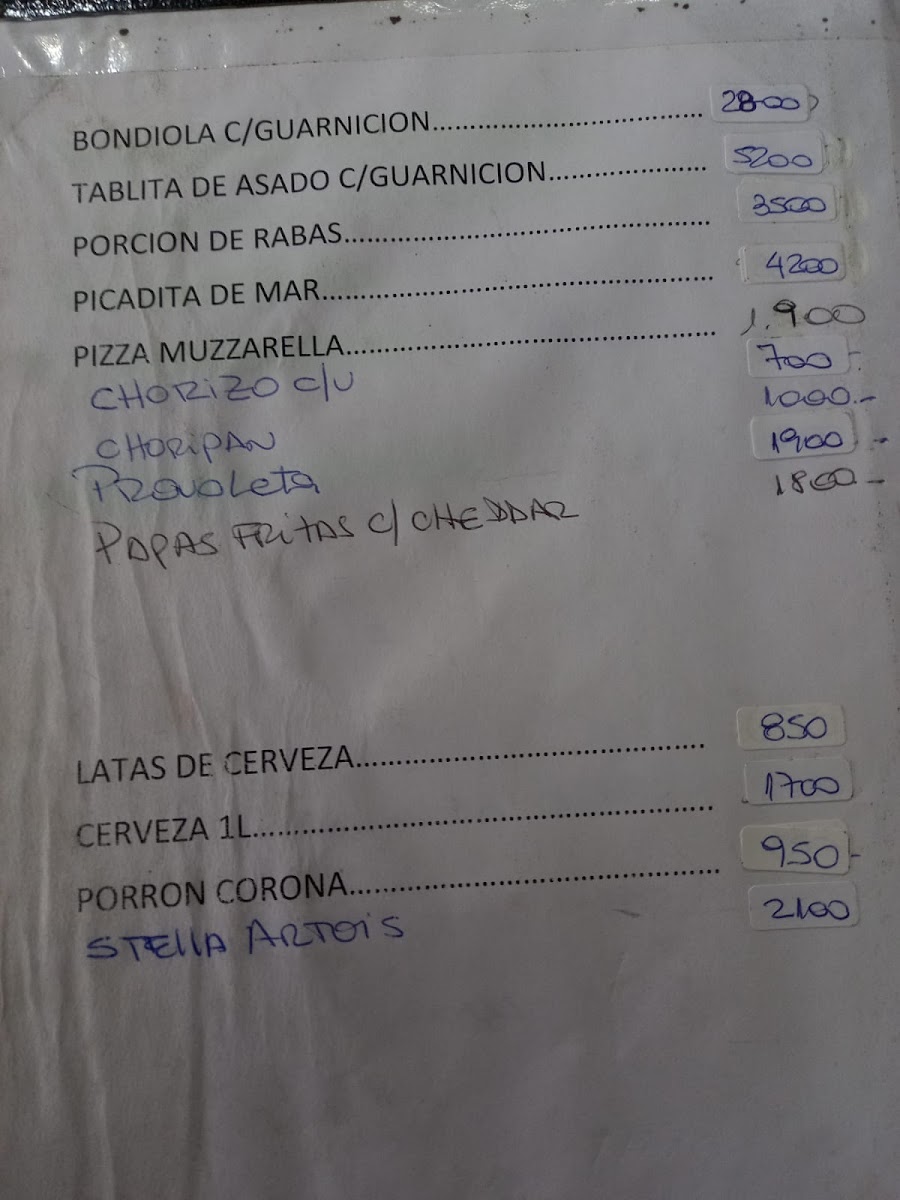 BONDIOLA C/GUARNICION.................................. 2800
TABLITA DE ASADO C/GUARNICION.................... 5200
PORCION DE RABAS............................................... 3500
PICADITA DE MAR.................................................. 4200
PIZZA MUZZARELLA............................................... 1.900
CHORIZO C/U 700-
CHORIPAN 1000.-
PROVOLETA 1900.-
PAPAS FRITAS C/ CHEDDAR 1800-
LATAS DE CERVEZA............................................. 850
CERVEZA 1L.......................................................... 1700
PORRON CORONA................................................ 950-
STELLA ARTOIS 2100